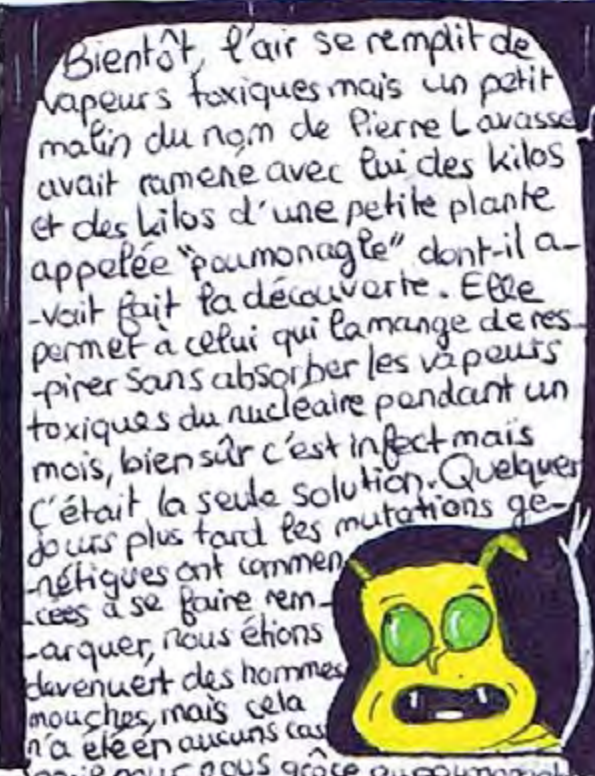 Bientôt, l'air se remplit de
vapeurs toxiques mais un petit
malin du nom de Pierre Lavasse
avait ramené avec lui des kilos
et des kilos d'une petite plante
appelée "poumonagle" dont-il a-
-vait fait la découverte. Elle
permet à celui qui la mange de res-
-pirer sans absorber les vapeurs
toxiques du nucléaire pendant un
mois, bien sûr c'est infect mais
C'était la seule solution. Quelques
jours plus tard les mutations gé-
-nétiques ont commen
-cées à se faire rem-
-arquer, nous étions
devenuent des hommes
mouches, mais cela
n'a été en aucuns cas
pour nous grâce au